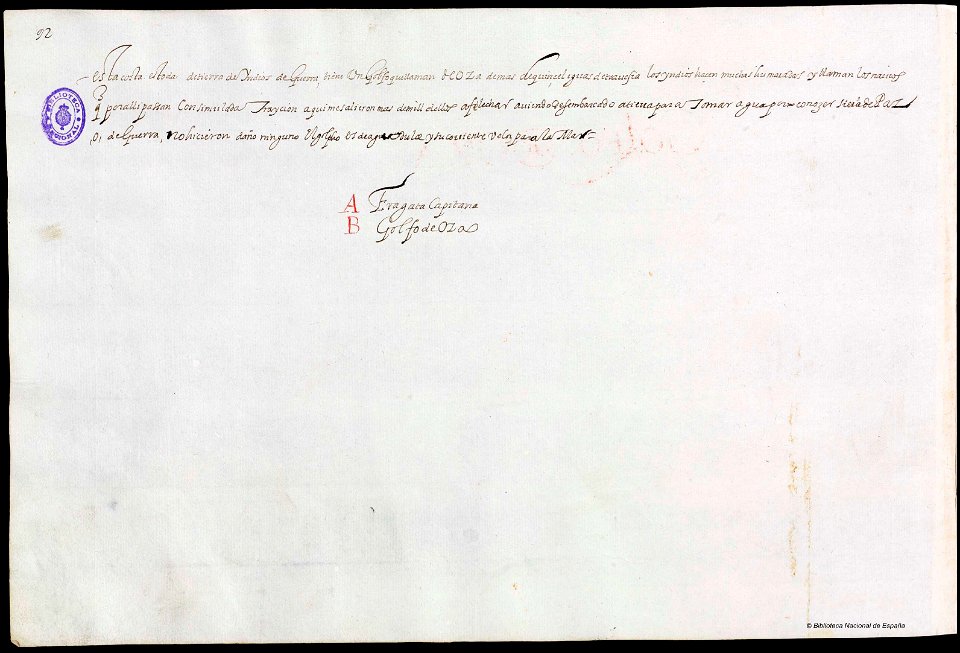 92
Esta costa es toda de tierra de Yndios de Guerra, tiene Un Golfo que llaman de OZa de mas de quince leguas de travesia los yndios hacen muchas humaradas y llaman los navios
q por alli pasan Con simulada Traycion aqui me salieron mas de mill dellos a flechar aviendo desembarcado a tierra para Tomar agua por conocer de Paz
o, de Guerra, no hicieron daño ninguno el golfo es de agua dulce y su corriente vela para la Mar
BIBLIOTECA NACIONAL
A Fragata Capitana
B Golfo de OZa
© Biblioteca Nacional de España